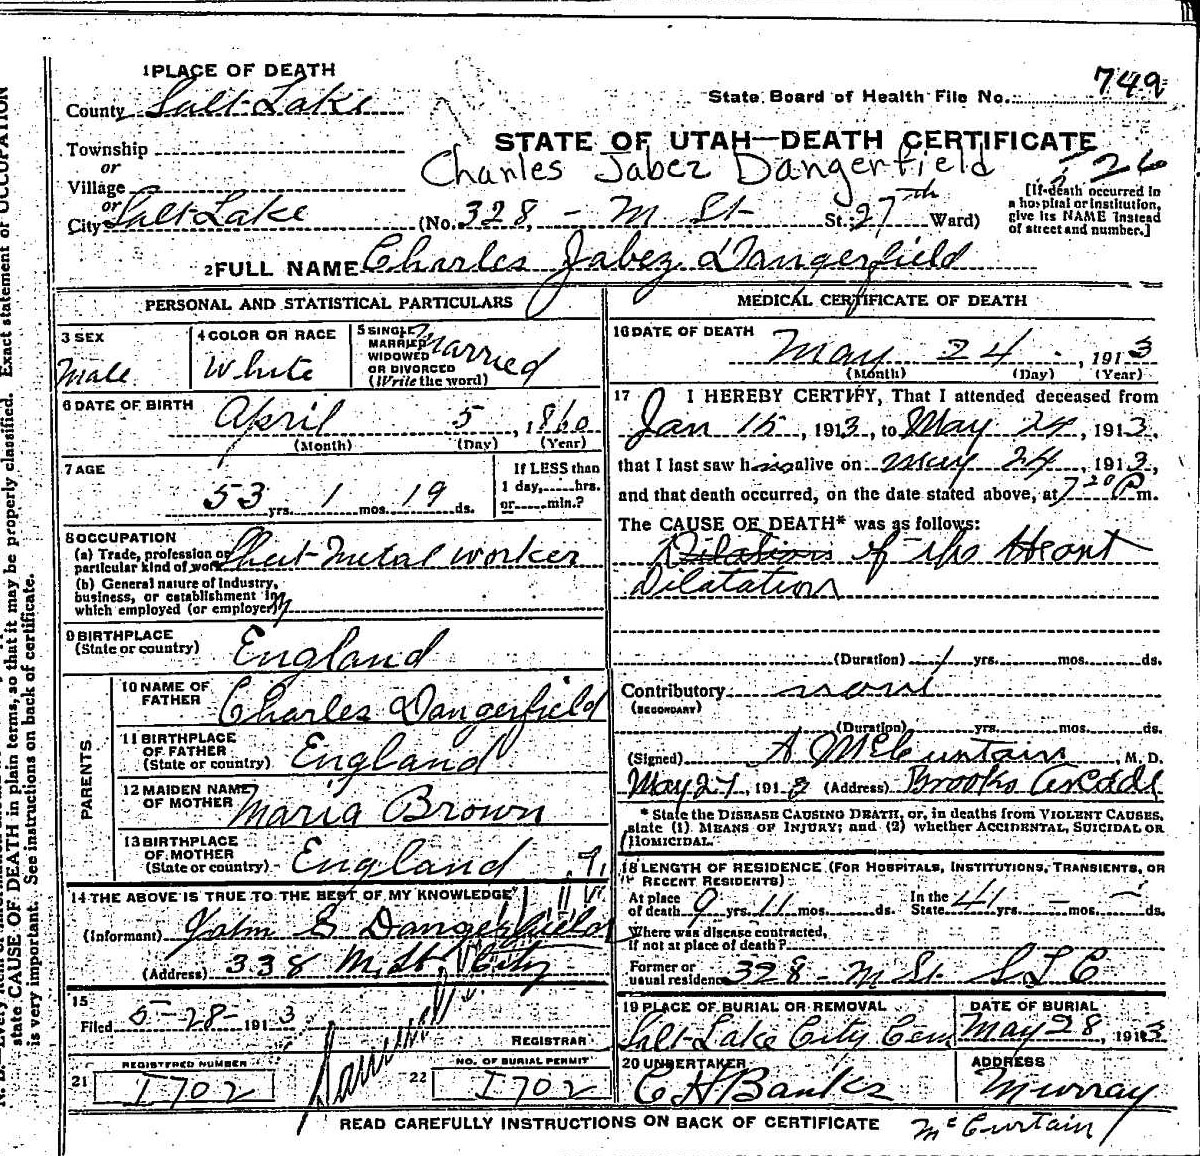 1 PLACE OF DEATH
County Salt Lake
Township
or
Village
or
City Salt Lake
State Board of Health File No. 749
STATE OF UTAH—DEATH CERTIFICATE
Charles Jabez Dangerfield
526
(No. 328 - M St St.; 27th Ward)
[If death occurred in
a hospital or institution,
give its NAME instead
of street and number.]
2 FULL NAME Charles Jabez Dangerfield
PERSONAL AND STATISTICAL PARTICULARS
3 SEX
Male
4 COLOR OR RACE
White
5 SINGLE
MARRIED
WIDOWED
OR DIVORCED
(Write the word)
Married
6 DATE OF BIRTH
April 5, 1860
(Month) (Day) (Year)
7 AGE
53 yrs. 1 mos. 19 ds.
If LESS than
1 day, hrs.
or min.?
8 OCCUPATION
(a) Trade, profession or
particular kind of work Sheet Metal worker
(b) General nature of industry,
business, or establishment in
which employed (or employer)
9 BIRTHPLACE
(State or country) England
PARENTS
10 NAME OF
FATHER Charles Dangerfield
11 BIRTHPLACE
OF FATHER
(State or country) England
12 MAIDEN NAME
OF MOTHER Maria Brown
13 BIRTHPLACE
OF MOTHER
(State or country) England
14 THE ABOVE IS TRUE TO THE BEST OF MY KNOWLEDGE
(Informant) John E Dangerfield
(Address) 338 M. St City
15
Filed 5-28-1913
REGISTRAR
REGISTERED NUMBER
21 1702
NO. OF BURIAL PERMIT
22 1702
MEDICAL CERTIFICATE OF DEATH
16 DATE OF DEATH
May 24, 1913
(Month) (Day) (Year)
17 I HEREBY CERTIFY, That I attended deceased from
Jan 15, 1913, to May 24, 1913,
that I last saw him alive on May 24, 1913,
and that death occurred, on the date stated above, at 7 20 P m.
The CAUSE OF DEATH* was as follows:
Dilation of the Heart
Dilatation
(Duration) 1 yrs. mos. ds.
Contributory none
(SECONDARY)
(Duration) yrs. mos. ds.
(Signed) A McCurtain, M. D.
May 27, 1913 (Address) Brooks Arcade
* State the DISEASE CAUSING DEATH, or, in deaths from VIOLENT CAUSES,
state (1) MEANS OF INJURY; and (2) whether ACCIDENTAL, SUICIDAL OR
HOMICIDAL.
18 LENGTH OF RESIDENCE (FOR HOSPITALS, INSTITUTIONS, TRANSIENTS, OR
RECENT RESIDENTS)
At place
of death 9 yrs. 11 mos. ds. In the
State 41 yrs. - mos. - ds.
Where was disease contracted,
if not at place of death?
Former or
usual residence 328 - M St. S L C
19 PLACE OF BURIAL OR REMOVAL
Salt Lake City Cem
DATE OF BURIAL
May 28, 1913
20 UNDERTAKER
C H Banks
ADDRESS
Murray
READ CAREFULLY INSTRUCTIONS ON BACK OF CERTIFICATE
McCurtain
state CAUSE OF DEATH in plain terms, so that it may be properly classified. Exact statement of OCCUPATION
is very important. See instructions on back of certificate.